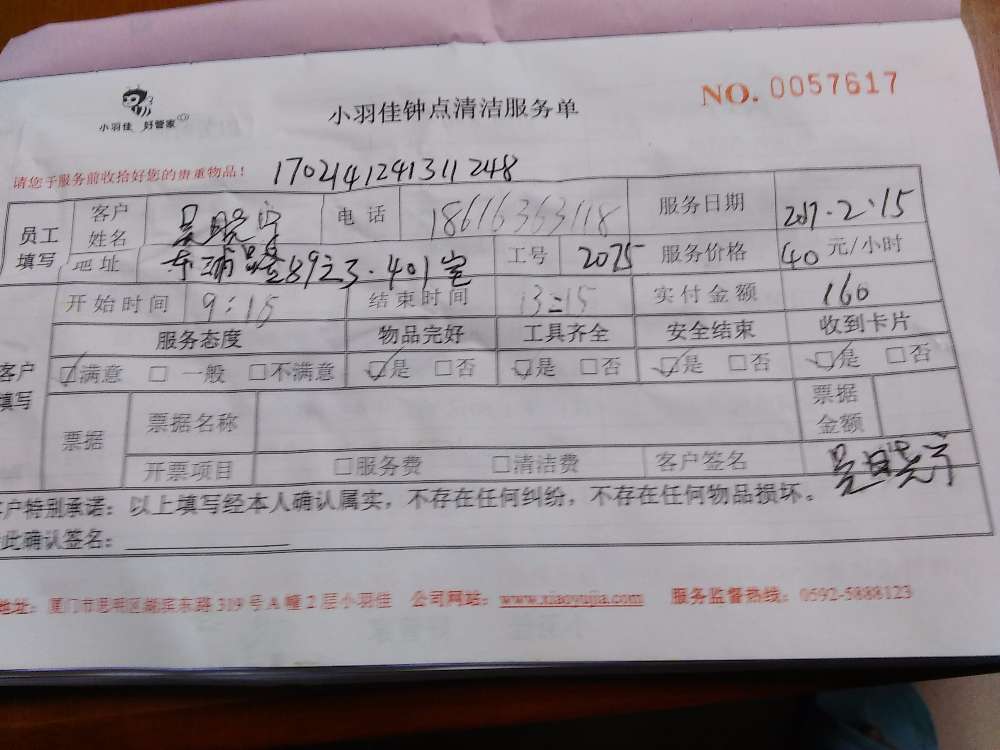 小羽佳 好管家
小羽佳钟点清洁服务单
NO. 0057617
请您于服务前收拾好您的贵重物品！ 1702141241311248
员工填写 客户姓名 吴晓宁 电话 18616363118 服务日期 2017.2.15
地址 东浦路89之3.401室 工号 2075 服务价格 40元/小时
开始时间 9:15 结束时间 13:15 实付金额 160
客户填写 服务态度 物品完好 工具齐全 安全结束 收到卡片
☑满意 □一般 □不满意 ☑是 □否 ☑是 □否 ☑是 □否 ☑是 □否
票据 票据名称 票据金额
开票项目 □服务费 □清洁费 客户签名 吴晓宁
客户特别承诺：以上填写经本人确认属实，不存在任何纠纷，不存在任何物品损坏。
此确认签名：
地址：厦门市思明区湖滨东路319号A幢2层小羽佳 公司网站：www.xiaoyujia.com 服务监督热线：0592-5888123